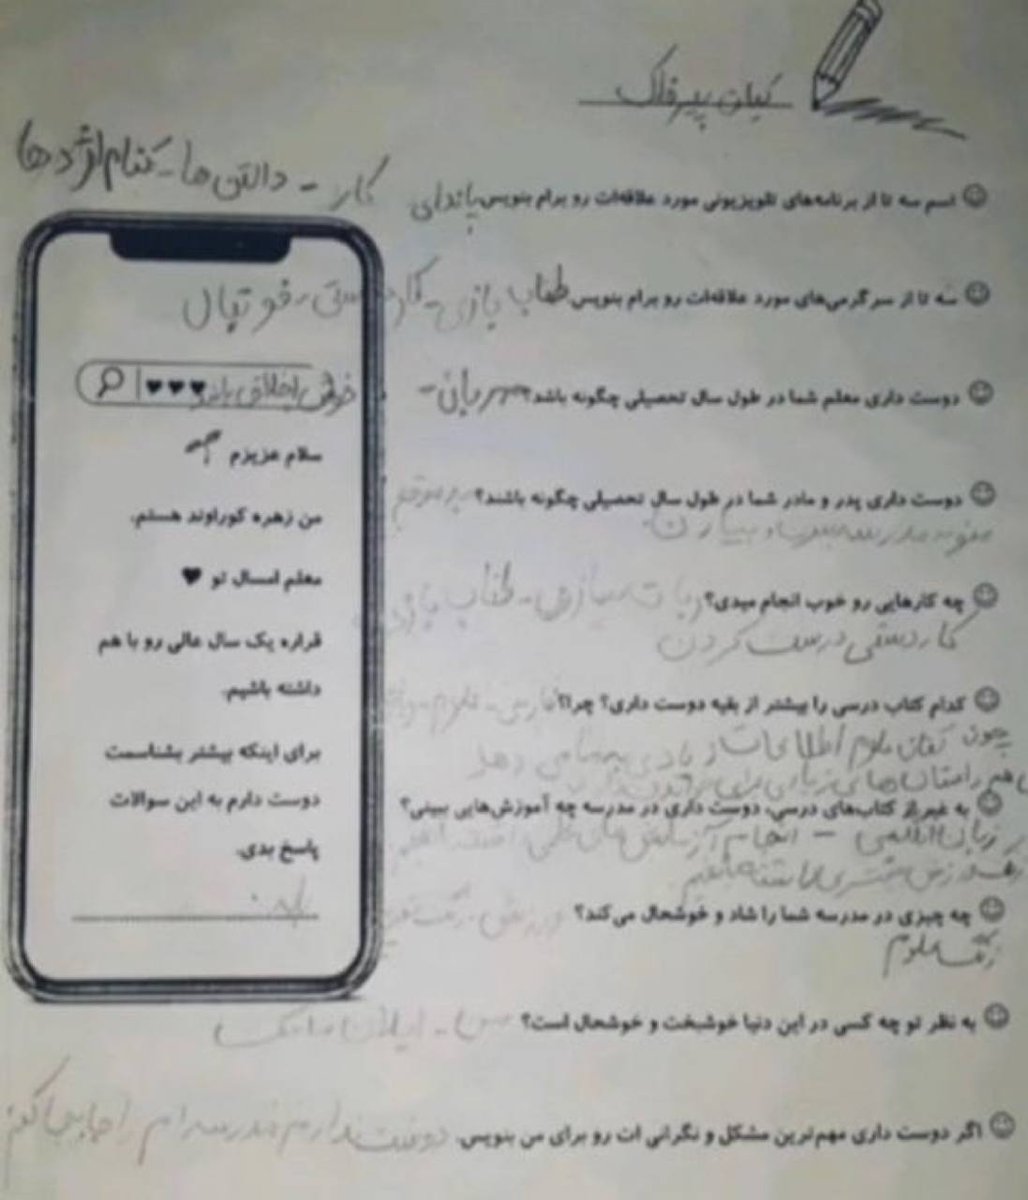 کیان پیرفلک
اسم سه تا از برنامه‌های تلویزیونی مورد علاقه‌ات رو برام بنویس پاندای کار - دالتن ها -
سه تا از سرگرمی‌های مورد علاقه‌ات رو برام بنویس طناب بازی - کاردستی - فوتبال
دوست داری معلم شما در طول سال تحصیلی چگونه باشد؟ مهربان - خوش اخلاق باشد
دوست داری پدر و مادر شما در طول سال تحصیلی چگونه باشند؟ به موقع
منو به مدرسه ببرند و بیارن
چه کارهایی رو خوب انجام میدی؟ ربات سازی - طناب بازی
کاردستی درست کردن
کدام کتاب درسی را بیشتر از بقیه دوست داری؟ چرا؟ فارسی - علوم -
چون کتاب علوم اطلاعات زیادی به ما می دهد
به غیر از کتاب‌های درسی، دوست داری در مدرسه چه آموزش‌هایی ببینی؟
زبان انگلیسی - انجام آزمایش های علمی
زنگ ورزش بیشتری داشته باشیم
چه چیزی در مدرسه شما را شاد و خوشحال می‌کند؟ ورزش - زنگ
زنگ علوم
به نظر تو چه کسی در این دنیا خوشبخت و خوشحال است؟ ایلان ماسک
اگر دوست داری مهم‌ترین مشکل و نگرانی ات رو برای من بنویس. دوست ندارم مدرسه ام را جابجا کنم
سلام عزیزم
من زهره کوراوند هستم.
معلم امسال تو ♥
قراره یک سال عالی رو با هم
داشته باشیم.
برای اینکه بیشتر بشناسمت
دوست دارم به این سوالات
پاسخ بدی.